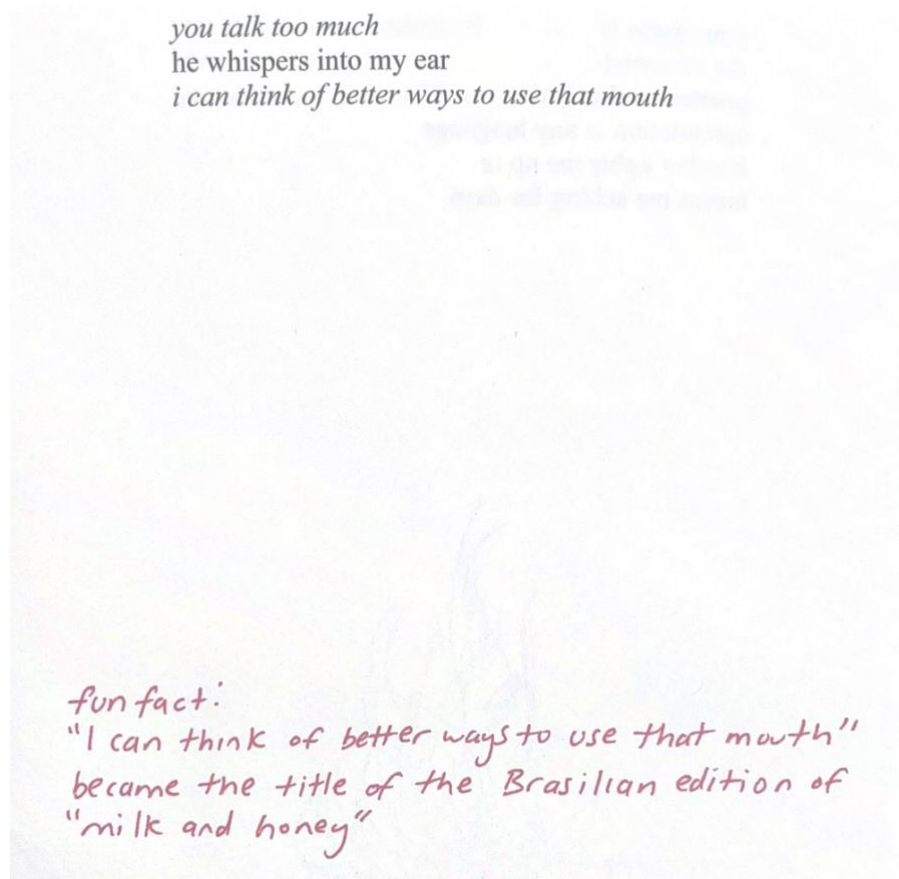 you talk too much
he whispers into my ear
i can think of better ways to use that mouth
fun fact:
"I can think of better ways to use that mouth"
became the title of the Brasilian edition of
"milk and honey"